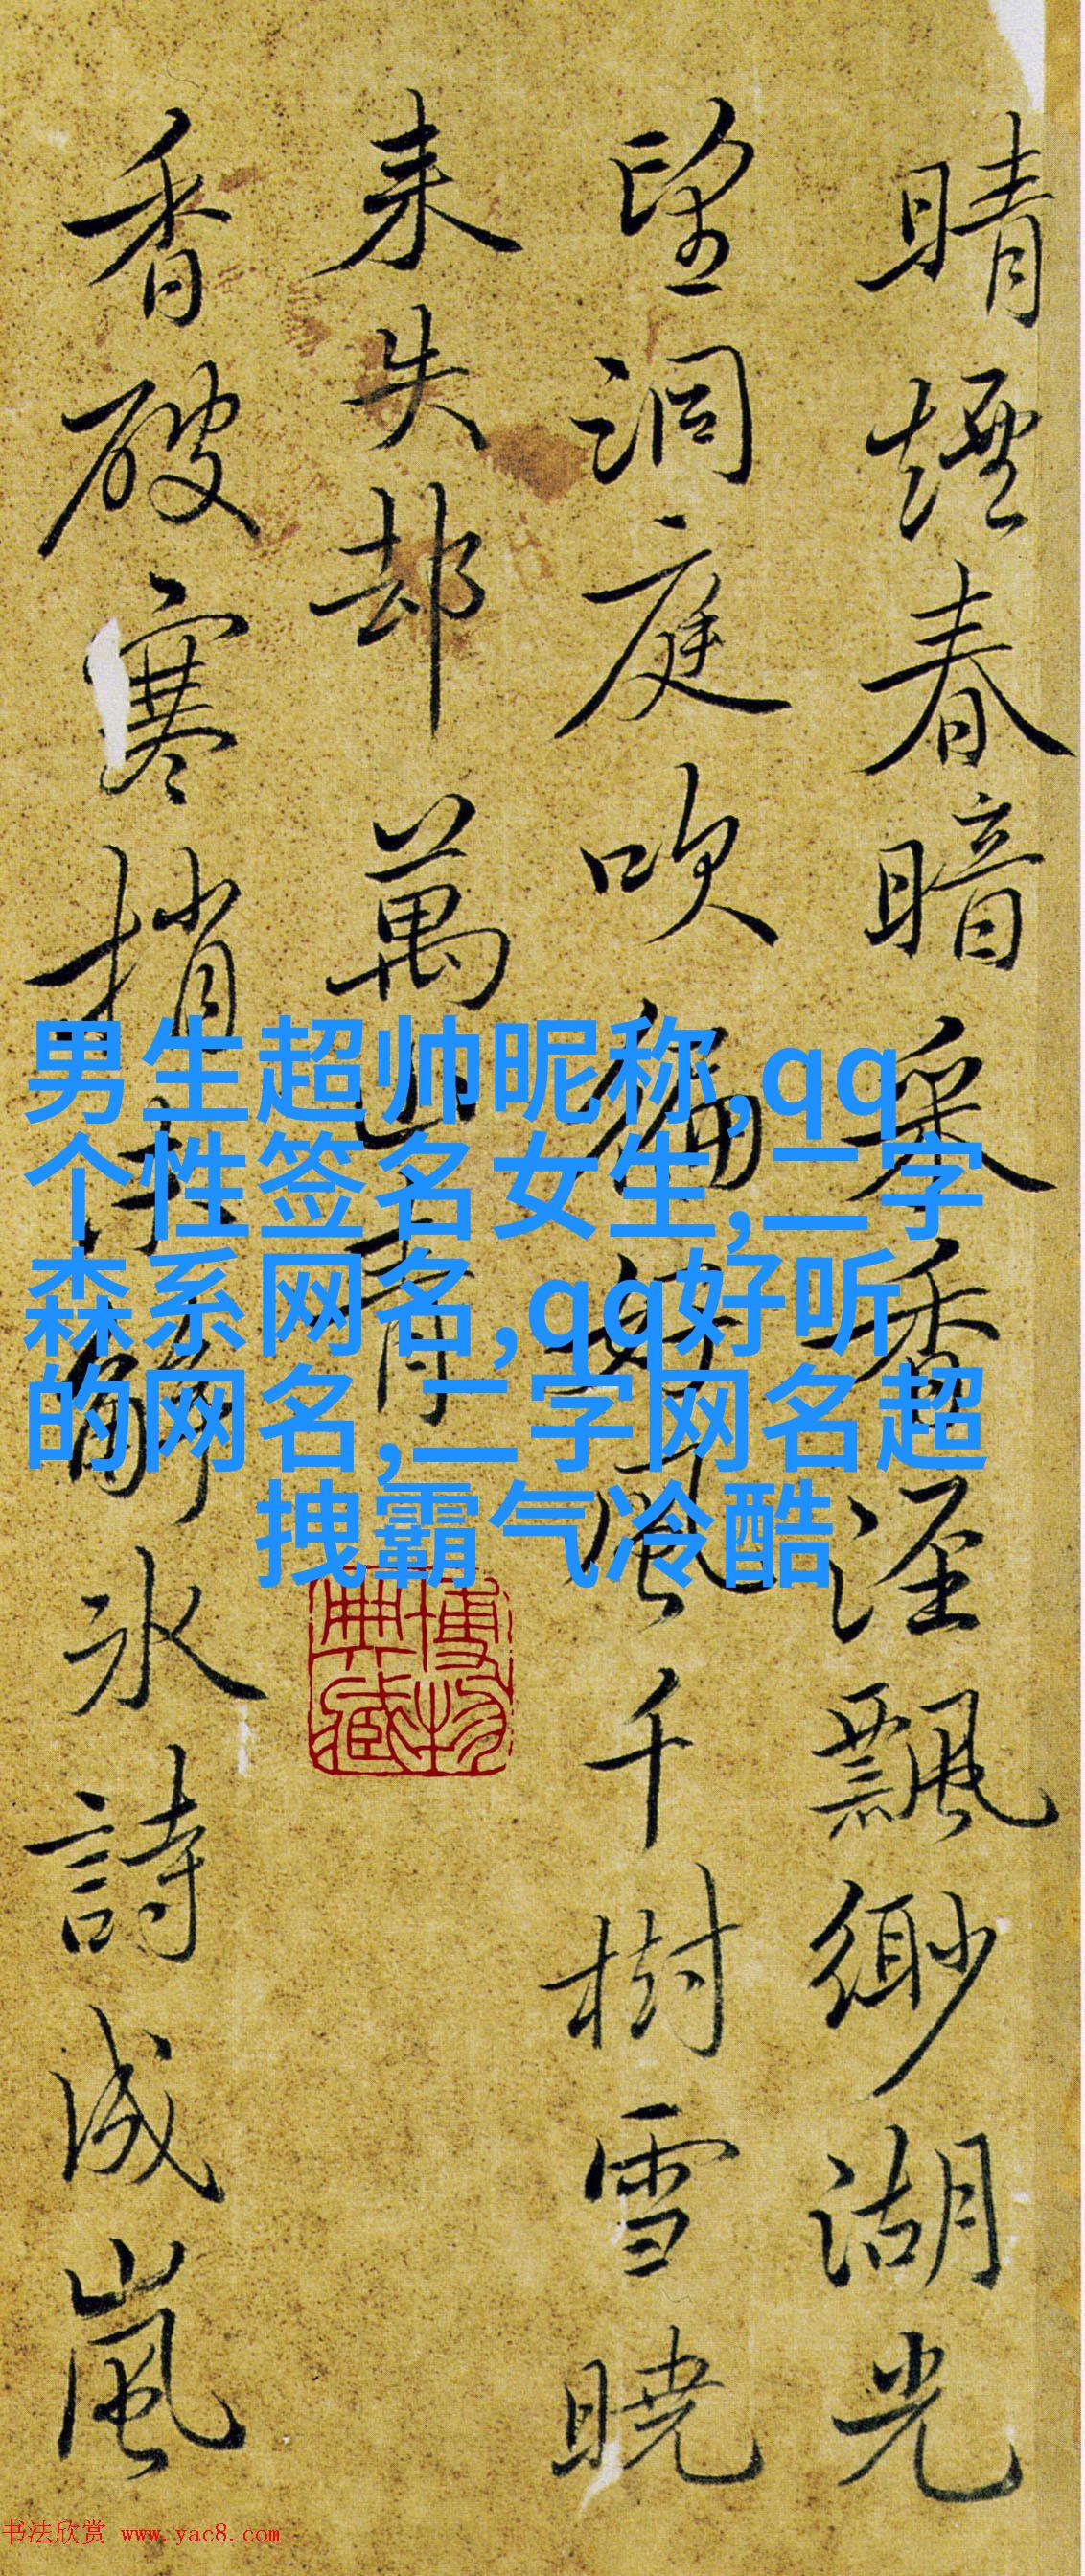 晴煙春暗采香涇飄緲湖光
望洞庭吹徧好風千樹雪曉
来失却萬山青
香破寒梢解冰詩成嵐
男生超帅昵称,qq
个性签名女生,二字
森系网名,qq好听
的网名,二字网名超
拽霸气冷酷
博物
典藏
书法欣赏 www.yac8.com